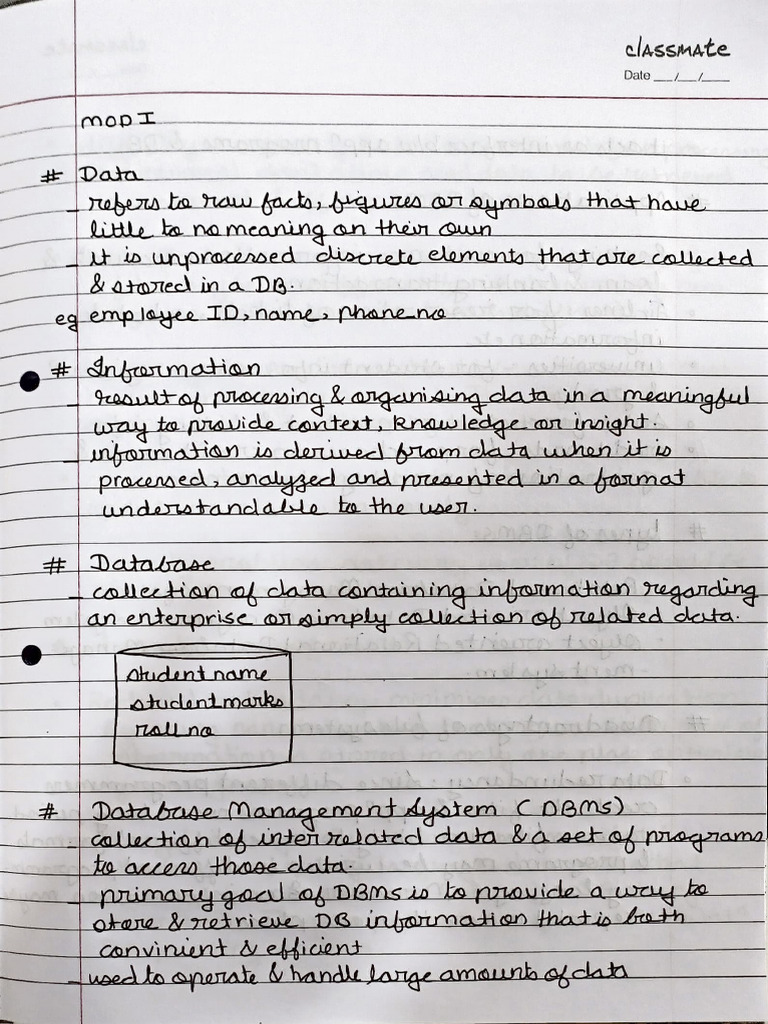 classmate
Date __/__/__
MOD I
# Data
- refers to raw facts, figures or symbols that have
little to no meaning on their own
- it is unprocessed discrete elements that are collected
& stored in a DB.
eg employee ID, name, phone no
# Information
- result of processing & organising data in a meaningful
way to provide context, knowledge or insight.
- information is derived from data when it is
processed, analyzed and presented in a format
understandable to the user.
# Database
- collection of data containing information regarding
an enterprise or simply collection of related data.
student name
student marks
roll no
# Database Management System (DBMS)
- collection of inter related data & a set of programs
to access those data.
- primary goal of DBMS is to provide a way to
store & retrieve DB information that is both
convinient & efficient
- used to operate & handle large amounts of data